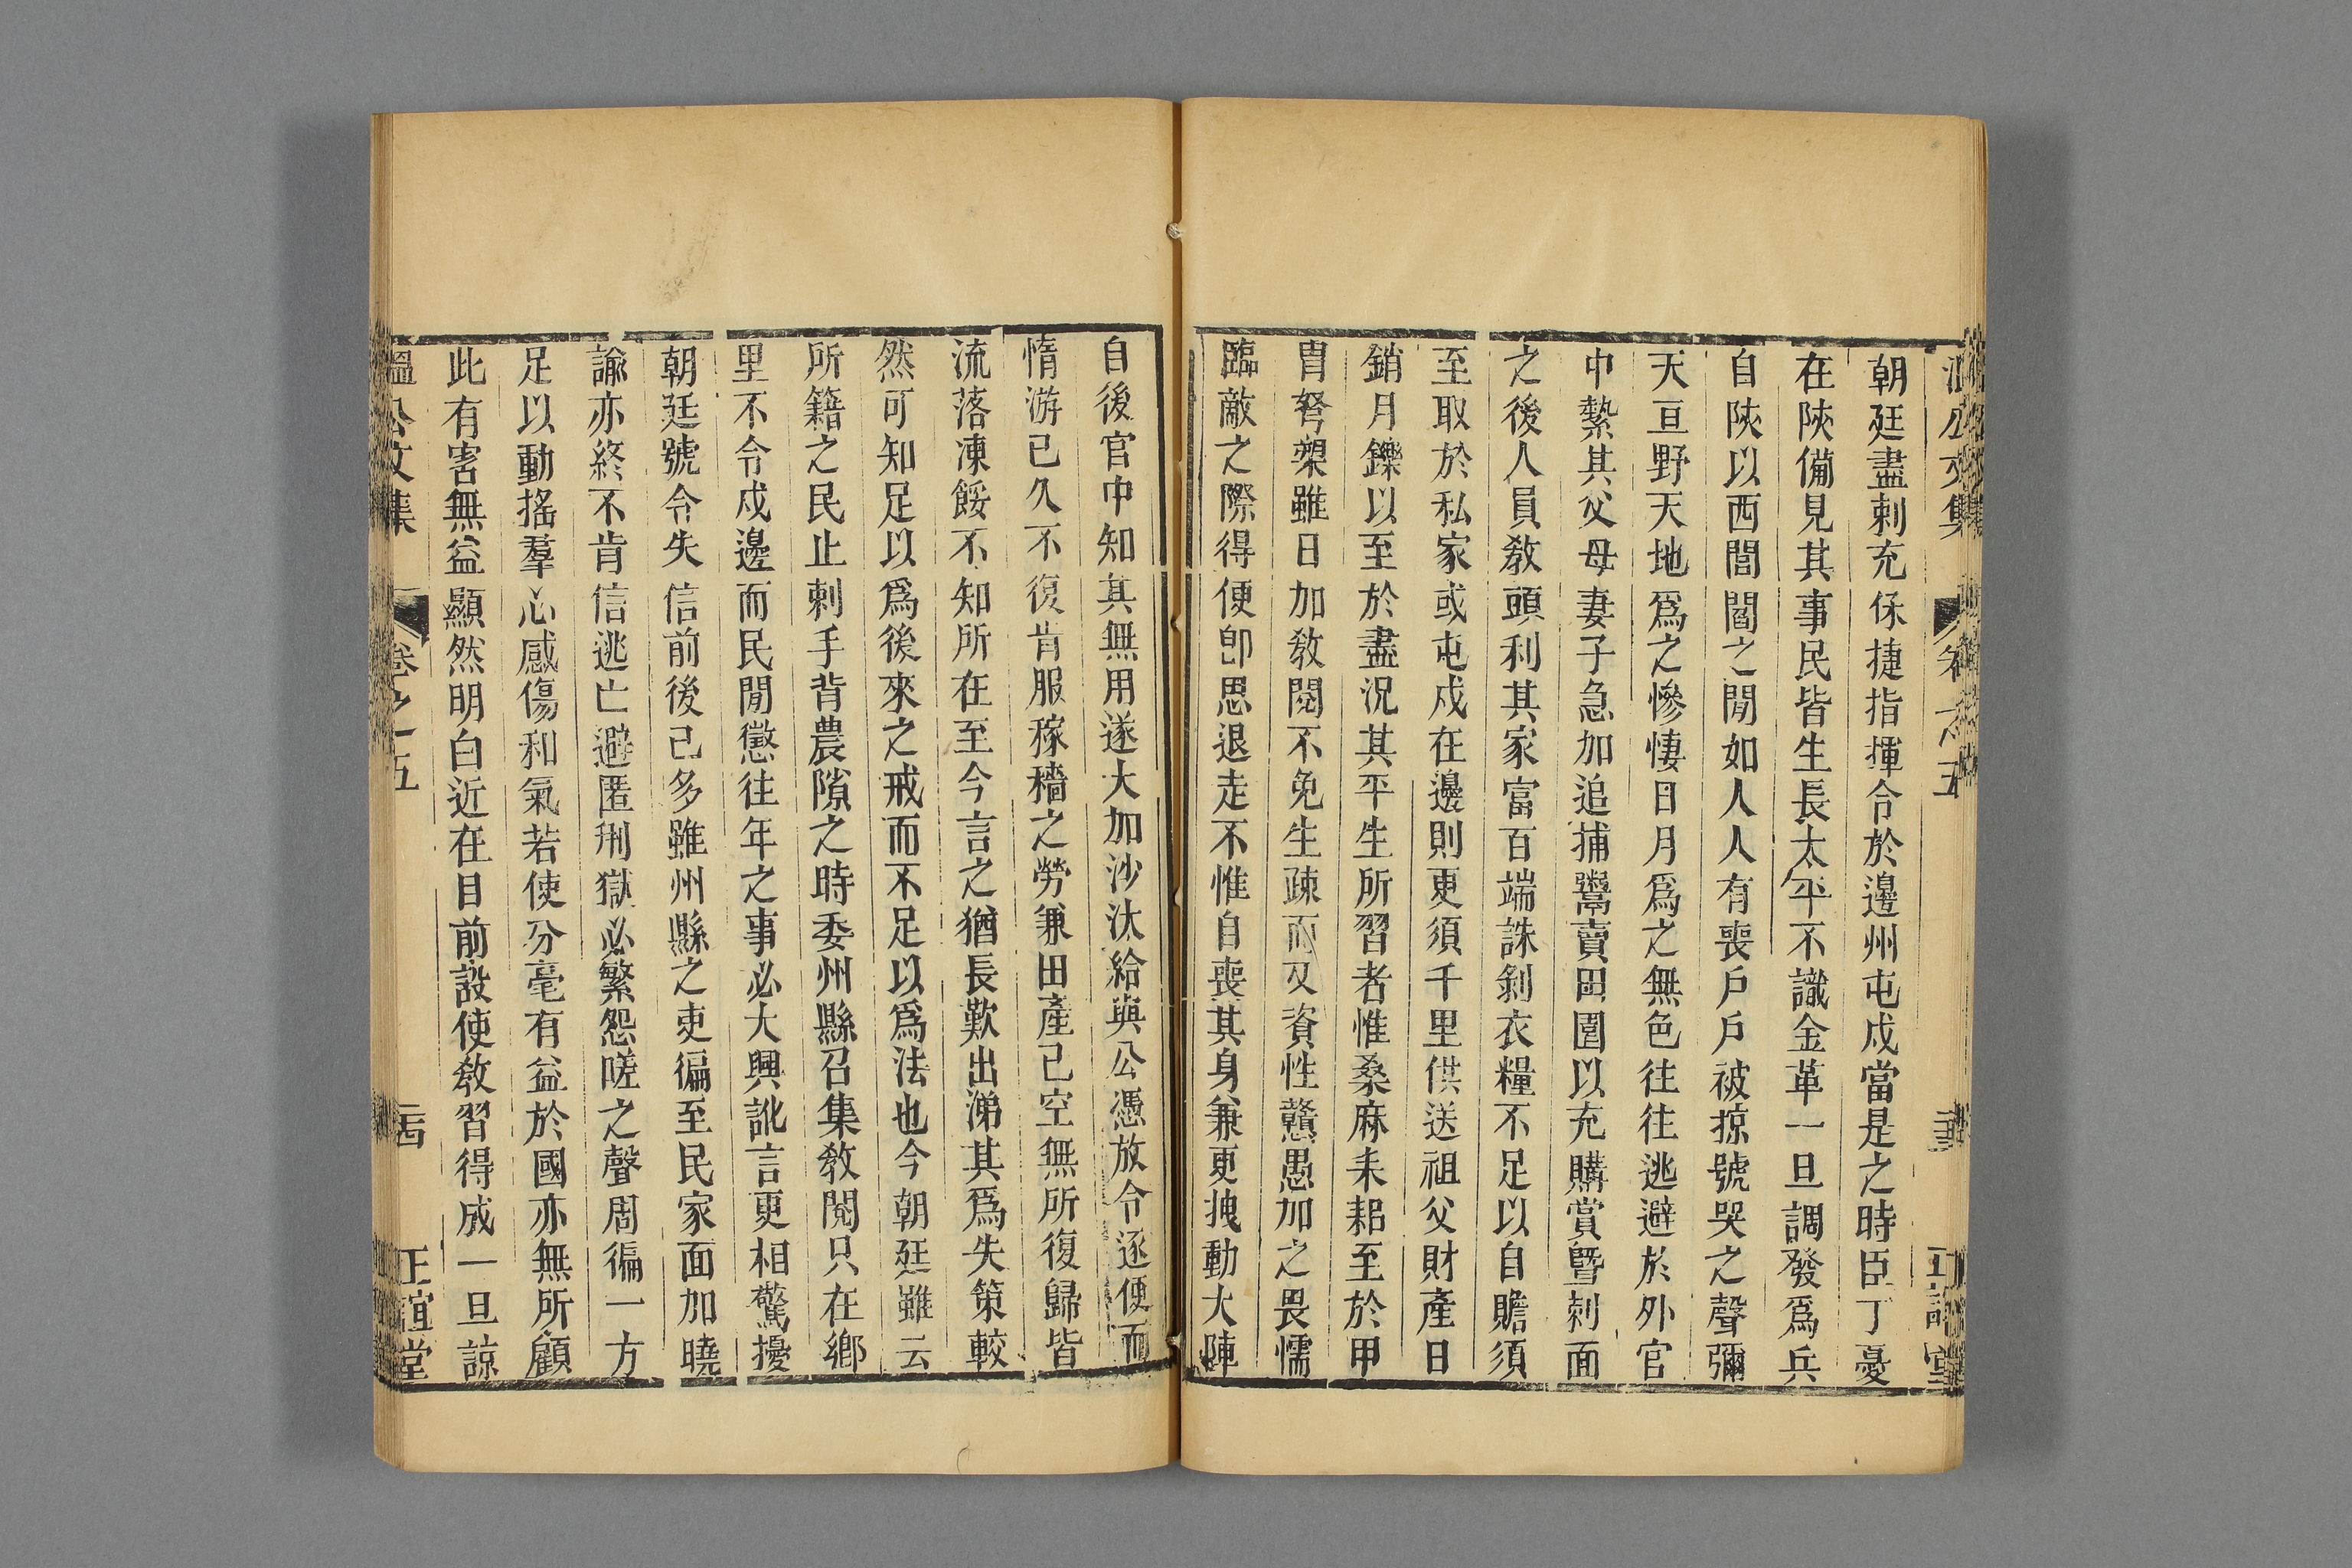 朝廷盡刺充保捷指揮令於邊州屯戍當是之時臣丁憂
在陝備見其事民皆生長太平不識金革一旦調發爲兵
自陝以西閭閻之閒如人人有喪戶戶被掠號哭之聲彌
天亘野天地爲之慘悽日月爲之無色往往逃避於外官
中縶其父母妻子急加追捕鬻賣田園以充購賞曁刺面
之後人員敎頭利其家富百端誅剝衣糧不足以自贍須
至取於私家或屯戍在邊則更須千里供送祖父財產日
銷月鑠以至於盡況其平生所習者惟桑麻耒耜至於甲
胄弩槊雖日加敎閱不免生疎而又資性戇愚加之畏懦
臨敵之際得便卽思退走不惟自喪其身兼更拽動大陣
自後官中知其無用遂大加沙汰給與公憑放令逐便而
惰游已久不復肯服稼穡之勞兼田產已空無所復歸皆
流落凍餒不知所在至今言之猶長歎出涕其爲失策較
然可知足以爲後來之戒而不足以爲法也今朝廷雖云
所籍之民止刺手背農隙之時委州縣召集敎閱只在鄉
里不令戍邊而民閒懲往年之事必大興訛言更相驚擾
朝廷號令失信前後已多雖州縣之吏徧至民家面加曉
諭亦終不肯信逃亡避匿刑獄必繁怨嗟之聲周徧一方
足以動搖羣心感傷和氣若使分毫有益於國亦無所顧
此有害無益顯然明白近在目前設使敎習得成一旦諒
溫公文集 卷之五 二十四 正誼堂